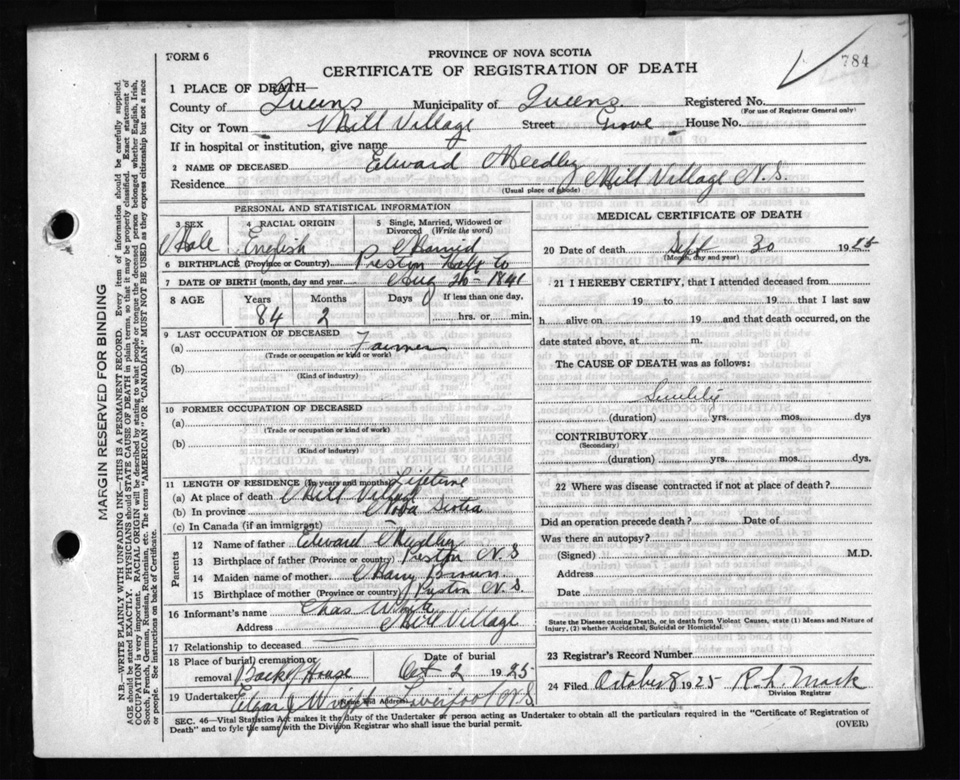 784
FORM 6
PROVINCE OF NOVA SCOTIA
CERTIFICATE OF REGISTRATION OF DEATH
1 PLACE OF DEATH—
County of Queens Municipality of Queens Registered No.
(For use of Registrar General only)
City or Town Mill Village Street Grove House No.
If in hospital or institution, give name
2 NAME OF DECEASED Edward Meedley
Residence Mill Village N.S.
(Usual place of abode)
PERSONAL AND STATISTICAL INFORMATION
3 SEX Male
4 RACIAL ORIGIN English
5 Single, Married, Widowed or Divorced (Write the word)
6 BIRTHPLACE (Province or Country) Preston Halfx Co
7 DATE OF BIRTH (month, day and year) Aug 26-1841
8 AGE Years Months Days If less than one day,
84 2 hrs. or min.
9 LAST OCCUPATION OF DECEASED
(a) Farmer
(Trade or occupation or kind or work)
(b)
(Kind of industry)
10 FORMER OCCUPATION OF DECEASED
(a)
(Trade or occupation or kind of work)
(b)
(Kind of industry)
11 LENGTH OF RESIDENCE (In years and months) Lifetime
(a) At place of death Mill Village
(b) In province Nova Scotia
(c) In Canada (if an immigrant)
Parents
12 Name of father Edward Meedley
13 Birthplace of father (Province or country) Preston N.S
14 Maiden name of mother Mary Brown
15 Birthplace of mother (Province or Country) Preston N.S.
16 Informant's name Chas
Address Mill Village
17 Relationship to deceased
18 Place of burial, cremation or removal Date of burial
Oct 2 1925
19 Undertaker Edgar J Liverpool N S
(Name and Address)
MEDICAL CERTIFICATE OF DEATH
20 Date of death Sept 30 1925
(Month, day and year)
21 I HEREBY CERTIFY, that I attended deceased from
19 to 19 that I last saw
h alive on 19 and that death occurred, on the
date stated above, at m.
The CAUSE OF DEATH was as follows:
Senility
(duration) yrs. mos. dys
CONTRIBUTORY
(Secondary)
(duration) yrs. mos. dys
22 Where was disease contracted if not at place of death?
Did an operation precede death? Date of
Was there an autopsy?
(Signed) M.D.
Address
Date
State the Disease causing Death, or in death from Violent Causes, state (1) Means and Nature of
Injury, (2) whether Accidental, Suicidal or Homicidal.
23 Registrar's Record Number
24 Filed October 8 1925 R. L. Mack
Division Registrar
SEC. 46—Vital Statistics Act makes it the duty of the Undertaker or person acting as Undertaker to obtain all the particulars required in the "Certificate of Registration of
Death" and to fyle the same with the Division Registrar who shall issue the burial permit. (OVER)
MARGIN RESERVED FOR BINDING
N.B.—WRITE PLAINLY WITH UNFADING INK—THIS IS A PERMANENT RECORD. Every item of information should be carefully supplied.
AGE should be stated EXACTLY. PHYSICIANS should STATE CAUSE OF DEATH in plain terms, so that it may be properly classified. Exact statement of
OCCUPATION is very important. RACIAL ORIGIN will be described by stating to what people or tongue the deceased person belonged whether English, Irish,
Scotch, French, German, Russian, Ruthenian, etc. The terms "AMERICAN" OR "CANADIAN" MUST NOT BE USED as they express citizenship but not a race
or people. See instructions on back of Certificate.